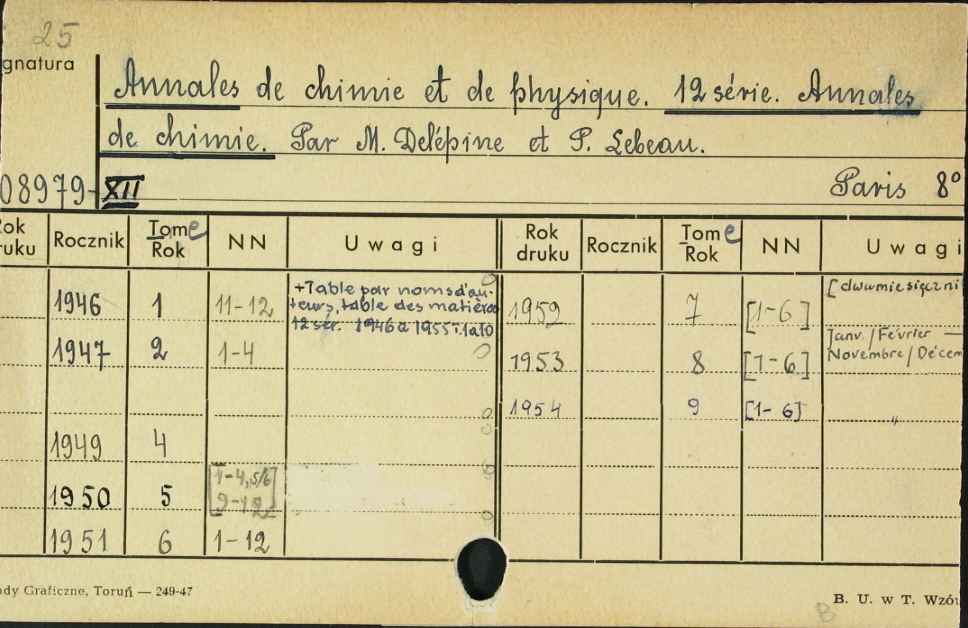 25
gnatura
Annales de chimie et de physique. 12 série. Annales
de chimie. Par M. Delépine et P. Lebeau.
08979-XII Paris 8°
Rok druku Rocznik Tome Rok NN Uwagi Rok druku Rocznik Tome Rok NN Uwagi
1946 1 11-12 +Table par noms d'au-
teurs, table des matières
12 sér. 1946 a 1955 t. 1 a 10
1959 7 [1-6] [dwumiesięczni
1947 2 1-4 1953 8 [1-6] Janv./Février —
Novembre/Décem
1954 9 [1-6] "
1949 4
1950 5 [1-4, 5/6
9-12]
1951 6 1-12
ady Graficzne, Toruń — 249-47
B. U. w T. Wzó
B